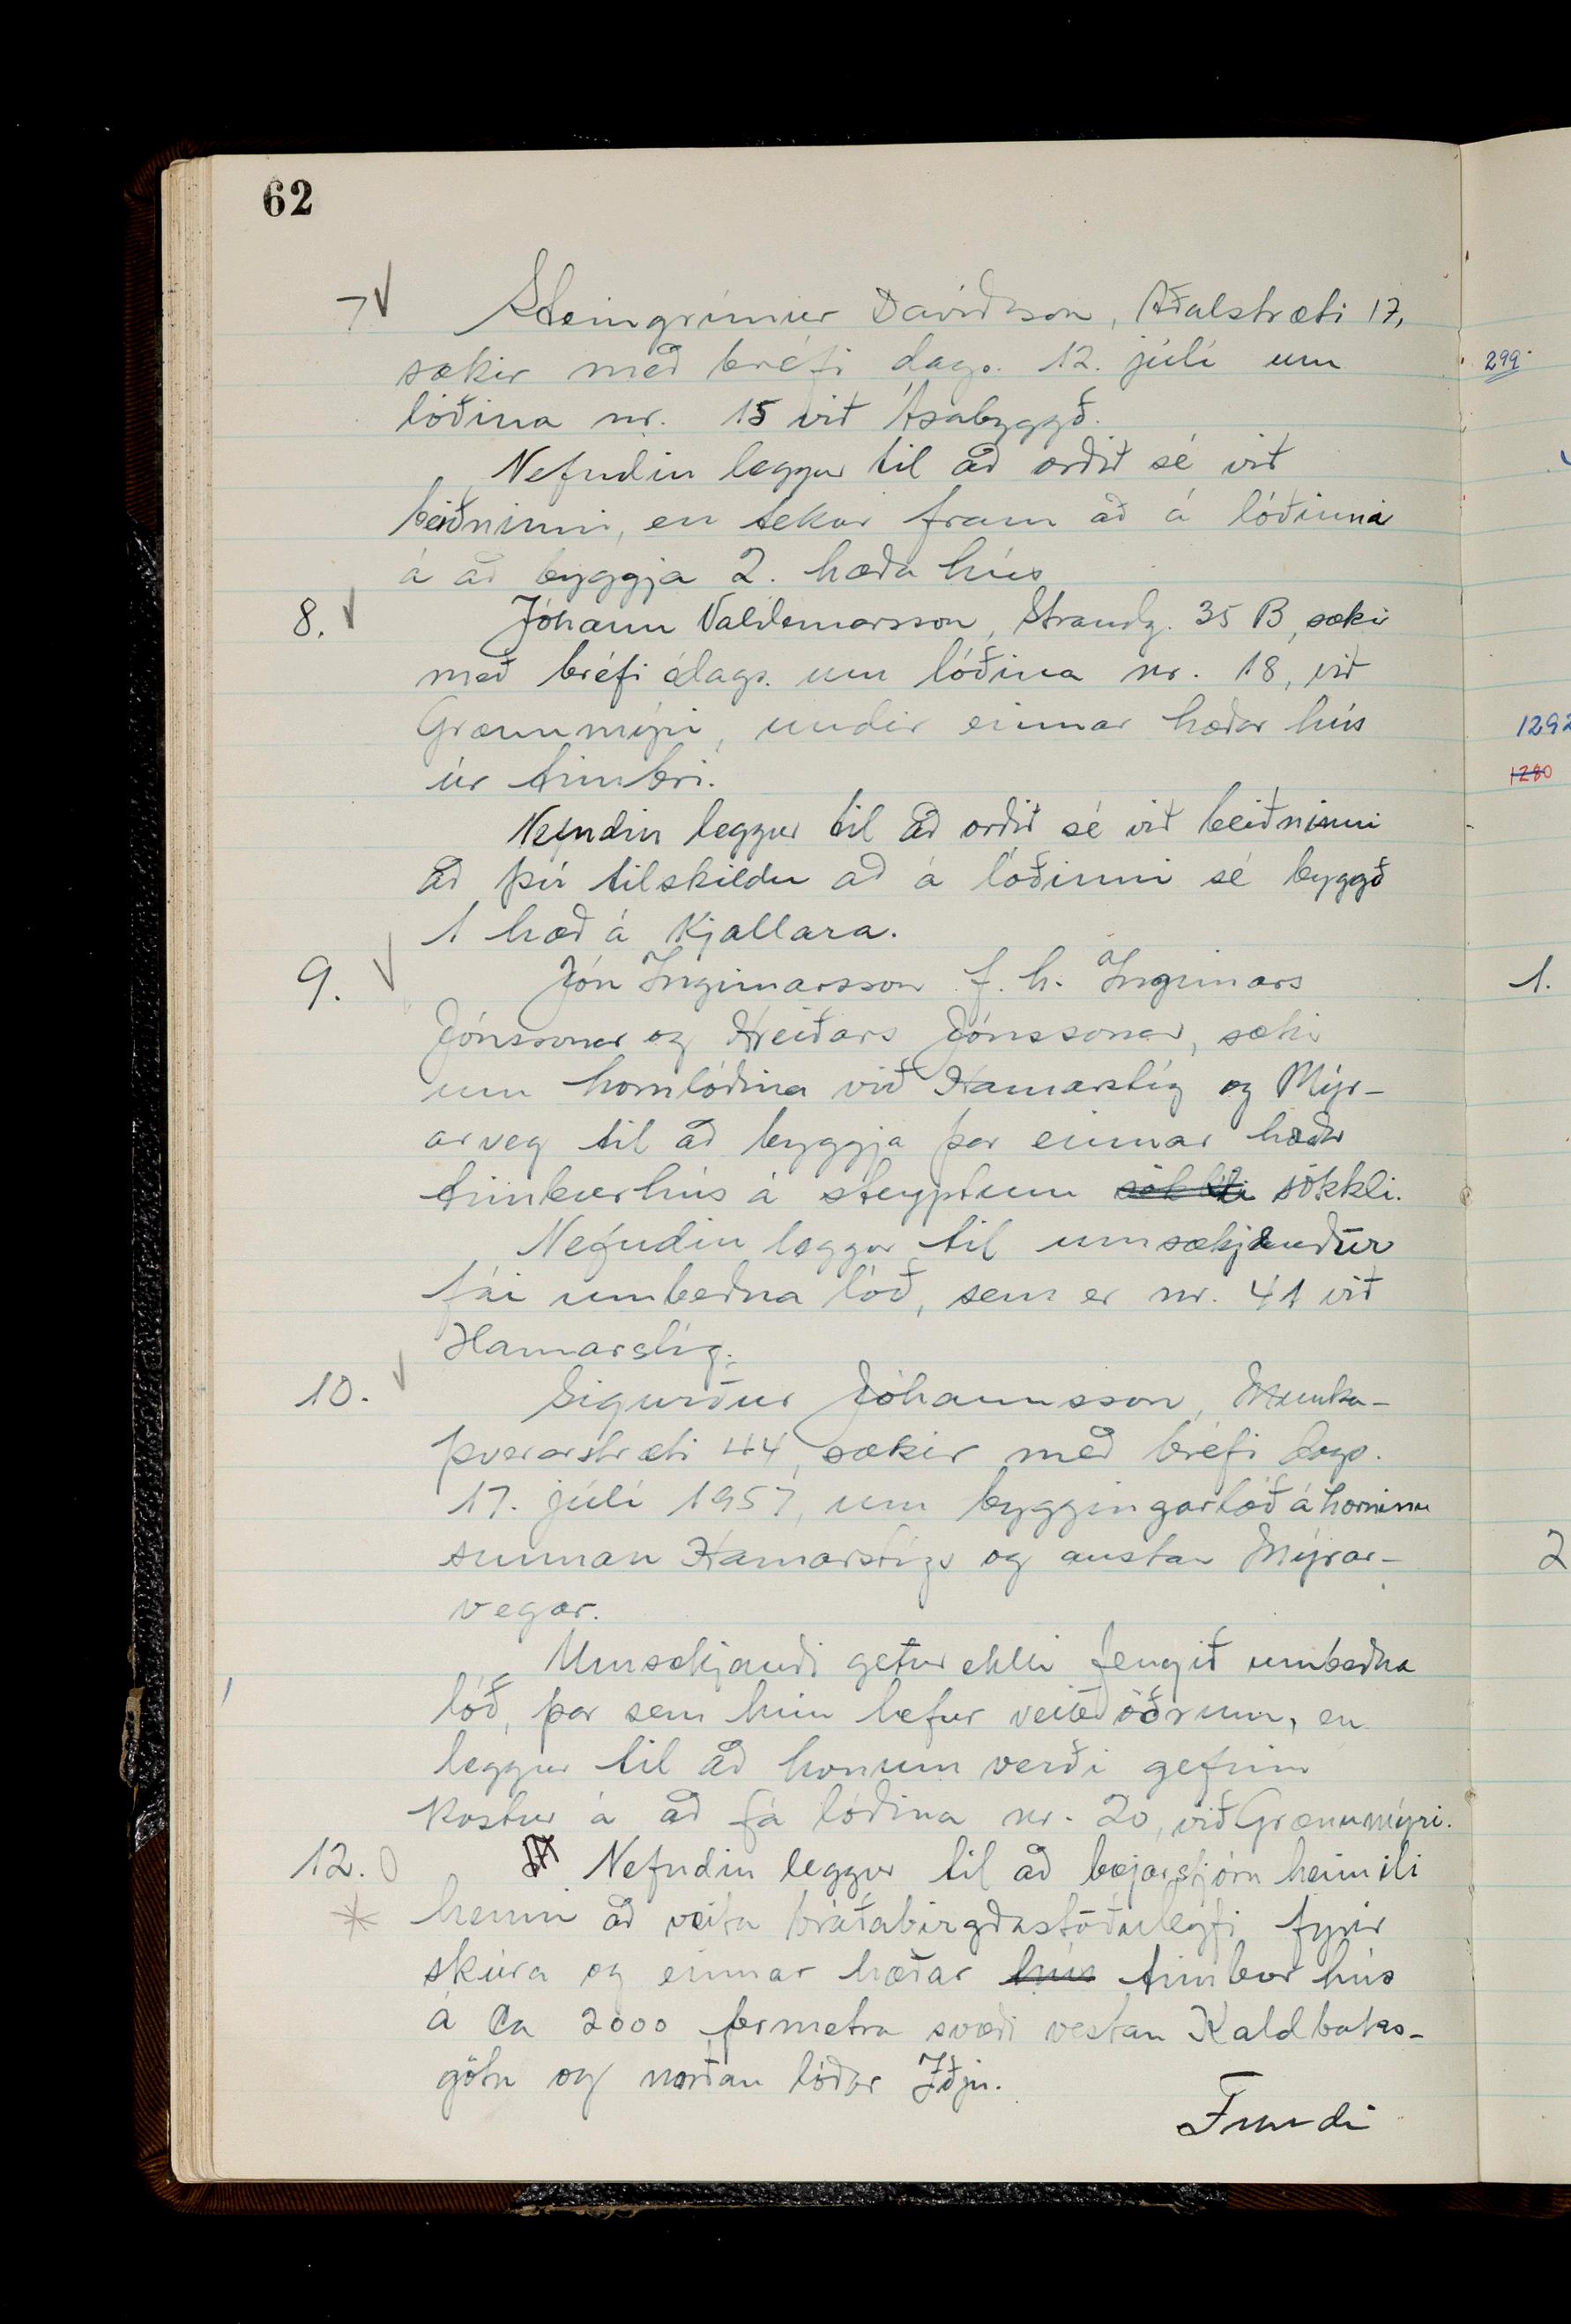 62
7 Steingrímur Davíðsson, Aðalstræti 17,
sækir með bréfi dags. 12. júlí um
lóðina nr. 15 við Ásabyggð.
Nefndin leggur til að orðið sé við
beiðninni, en tekur fram að á lóðinni
á að byggja 2. hæða hús
8. Jóhann Valdemarsson, Strandg. 35 B, sækir
með bréfi ódags. um lóðina nr. 18, við
Grænumýri, undir einnar hæðar hús
úr timbri.
Nefndin leggur til að orðið sé við beiðninni
að því tilskildu að á lóðinni sé byggð
1 hæð á kjallara.
9. Jón Ingimarsson f. h. Ingimars
Jónssonar og Hreiðars Jónssonar, sækir
um hornlóðina við Hamarstíg og Mýr-
arveg til að byggja þar einnar hæðar
timburhús á steyptum sökkli.
Nefndin leggur til umsækjendur
fái umbeðna lóð, sem er nr. 41 við
Hamarstíg.
10. Sigurður Jóhannsson, Munka-
þverárstræti 44, sækir með bréfi dags.
17. júlí 1957, um byggingarlóð á horninu
sunnan Hamarstígs og austan Mýrar-
vegar.
Umsækjandi getur ekki fengið umbeðna
lóð, þar sem hún hefur veitt öðrum, en
leggur til að honum verði gefinn
kostur á að fá lóðina nr. 20, við Grænumýri.
12. Nefndin leggur til að bæjarstjórn heimili
henni að veita bráðabirgðastöðuleyfi fyrir
skúra og einnar hæðar hús timbur hús
á ca 2000 fermetra svæði vestan Kaldbaks-
götu og norðan lóðar Iðju.
Fundi
299
1292
1280
1.
2